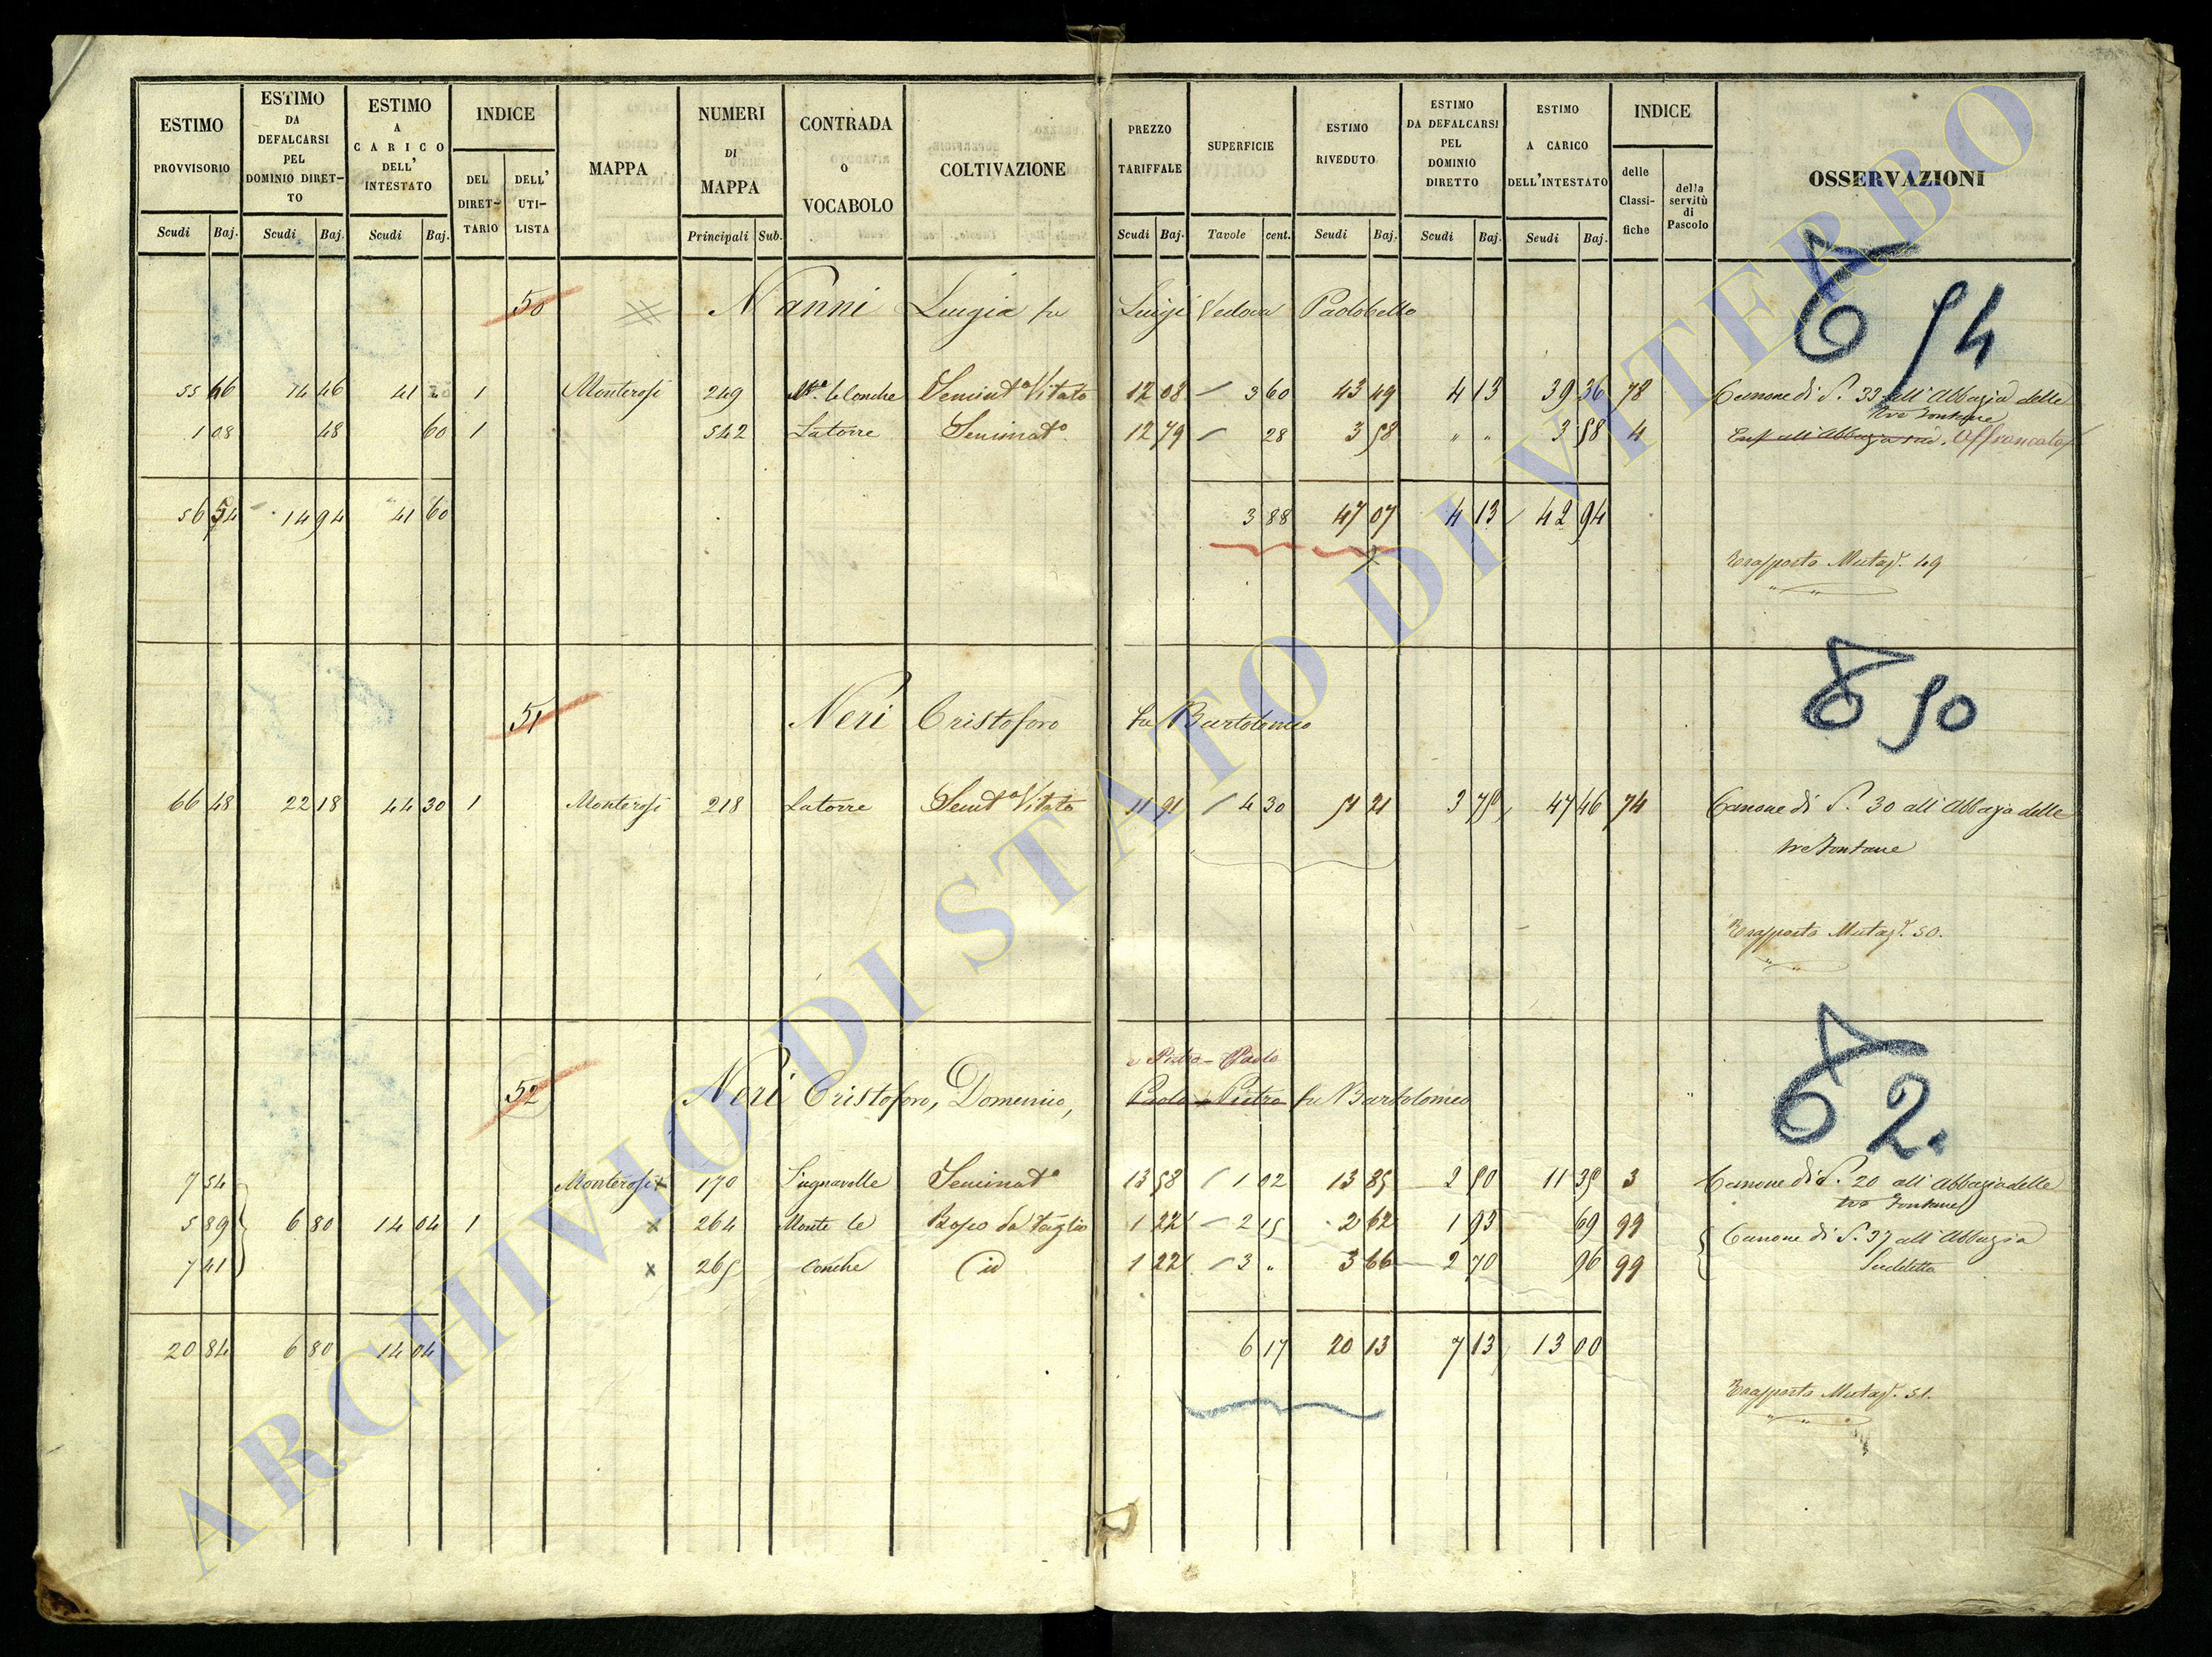 ESTIMO PROVVISORIO | ESTIMO DA DEFALCARSI PEL DOMINIO DIRET-TO | ESTIMO A CARICO DELL' INTESTATO | INDICE | MAPPA | NUMERI DI MAPPA | CONTRADA o VOCABOLO | COLTIVAZIONE | PREZZO TARIFFALE | SUPERFICIE | ESTIMO RIVEDUTO | ESTIMO DA DEFALCARSI PEL DOMINIO DIRETTO | ESTIMO A CARICO DELL'INTESTATO | INDICE | OSSERVAZIONI
DEL DIRET-TARIO | DELL' UTI-LISTA | delle Classi-fiche | della servitù di Pascolo
Scudi | Baj. | Scudi | Baj. | Scudi | Baj. | Principali | Sub. | Scudi | Baj. | Tavole | cent. | Scudi | Baj. | Scudi | Baj. | Scudi | Baj.
6 54
50 Nanni Luigia fu Luigi Vedova Paolobello
55 46 | 14 46 | 41 | 1 | Monterosi | 249 | Mte. le Conche | Seminto Vitato | 12 08 | 3 60 | 43 49 | 4 13 | 39 36 | 78 | Canone di S. 33 all'Abbazia delle
tre Fontane
1 08 | 48 | 60 | 1 | 542 | Latorre | Seminato | 12 79 | 28 | 3 58 | " " | 3 58 | 4 | Affrancato
56 54 | 14 94 | 41 60 | 3 88 | 47 07 | 4 13 | 42 94
Trasporto Mutaz. 49
6 50
51 Neri Cristoforo fu Bartolomeo
66 48 | 22 18 | 44 30 | 1 | Monterosi | 218 | Latorre | Semto Vitato | 11 91 | 4 30 | 51 21 | 3 75 | 47 46 | 74 | Canone di S. 30 all'Abbazia delle
tre Fontane
Trasporto Mutaz. 50.
6 2.
e Pietro - Paolo
52 Neri Cristoforo, Domenico, Paolo e Pietro fu Bartolomeo
7 54 | Monterosi x | 170 | Seminato | 13 58 | 1 02 | 13 85 | 2 50 | 11 35 | 3 | Canone di S. 20 all'Abbazia delle
tre Fontane
5 89 | 6 80 | 14 04 | 1 | x | 264 | Monte le | Bosco da Taglio | 1 22 | 2 15 | 2 62 | 1 93 | 69 | 99 | Canone di S. 37 all'Abbazia
7 41 | x | 265 | Conche | id | 1 22 | 3 " | 3 66 | 2 70 | 96 | 99 | Suddetta
20 84 | 6 80 | 14 04 | 6 17 | 20 13 | 7 13 | 13 00
Trasporto Mutaz. 51.
ARCHIVIO DI STATO DI VITERBO